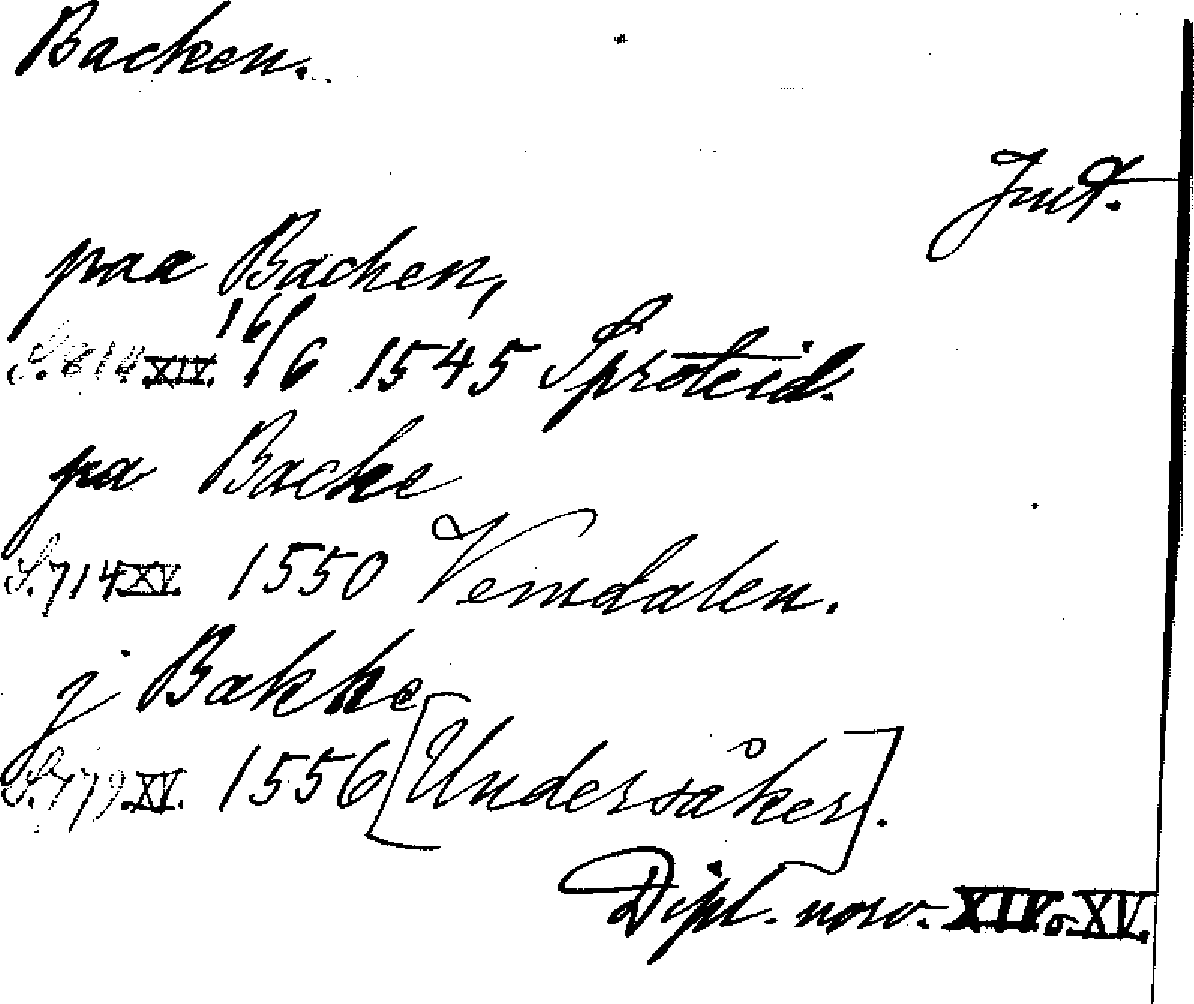 Backen.
Jmt.
paa Backen,
S. 814 XIV. 16/6 1545 Sproteid.
pa Backe
S. 714 XV. 1550 Vemdalen.
j Bakke
S. 779 XV. 1556 [Undersåker].
Dipl. norv. XIV. o. XV.